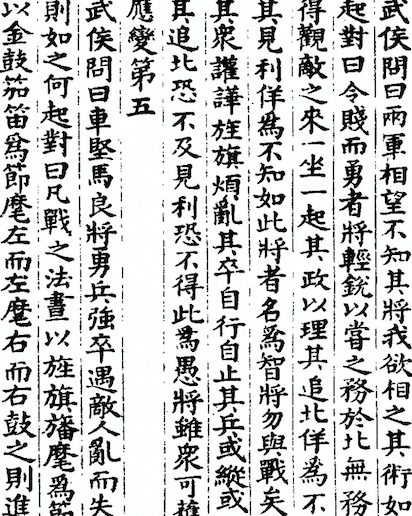 武侯問曰兩軍相望不知其將我欲相之其術如
起對曰令賤而勇者將輕銳以嘗之務於北無務
得觀敵之來一坐一起其政以理其追北佯為不
其見利佯為不知如此將者名為智將勿與戰矣
其衆讙譁旌旗煩亂其卒自行自止其兵或縱或
其追北恐不及見利恐不得此為愚將雖衆可獲
應變第五
武侯問曰車堅馬良將勇兵強卒遇敵人亂而失
則如之何起對曰凡戰之法晝以旌旗旛麾為節
以金鼓笳笛為節麾左而左麾右而右鼓之則進